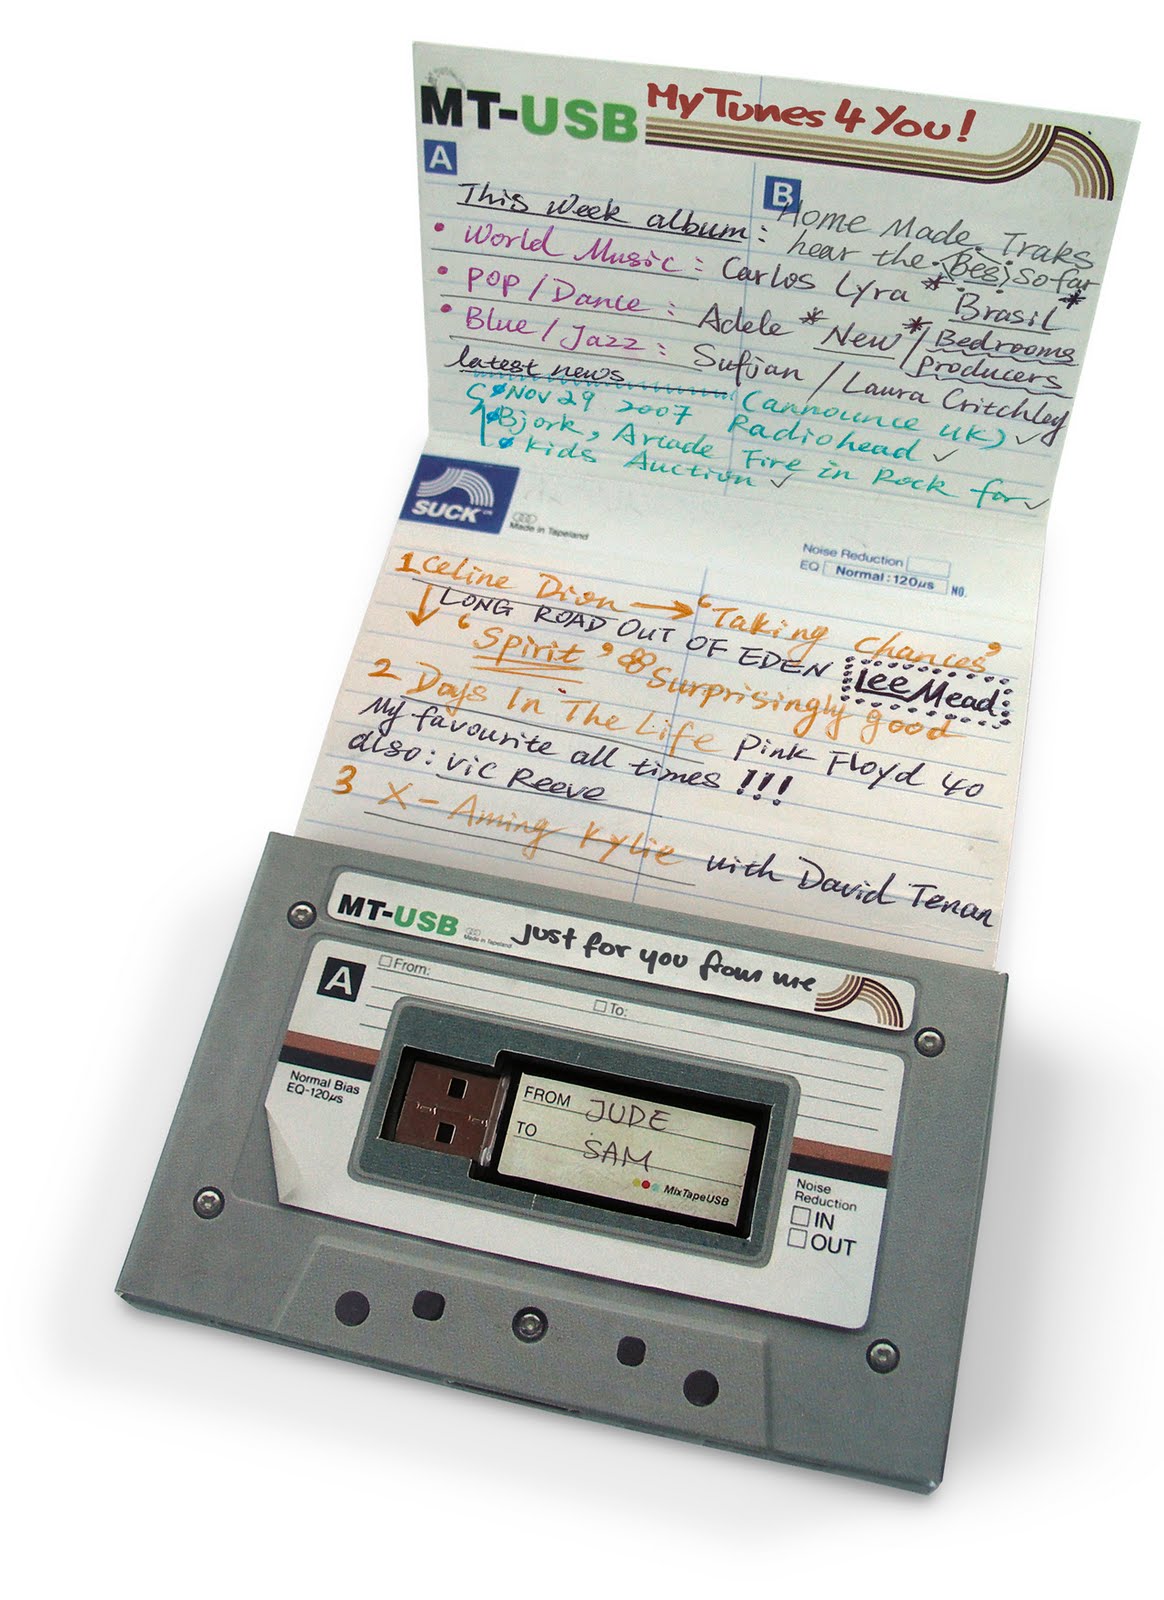 MT-USB My Tunes 4 You!
A
This Week album:
• World Music: Carlos Lyra *Brasil*
• Pop/Dance: Adele *New*/Bedrooms Producers
• Blue/Jazz: Sufjan/Laura Critchley
B
Home Made Traks
hear the Best so far
latest news
Nov 29 2007 Radiohead ✓
(announce UK) ✓
Bjork, Arcade Fire in Rock for ✓
Kids Auction ✓
SUCK
Made in Tapeland
Noise Reduction
EQ Normal:120μs NO.
1 Celine Dion → 'Taking Chances'
LONG ROAD OUT OF EDEN Lee Mead
'Spirit' Surprisingly good
2 Days In The Life Pink Floyd 40
My favourite all times !!!
also: Vic Reeve
3 X-Aming Kylie with David Tenan
MT-USB Made in Tapeland just for you from me
A
From:
To:
Normal Bias
EQ-120μs
FROM JUDE
TO SAM
MixTapeUSB
Noise
Reduction
IN
OUT